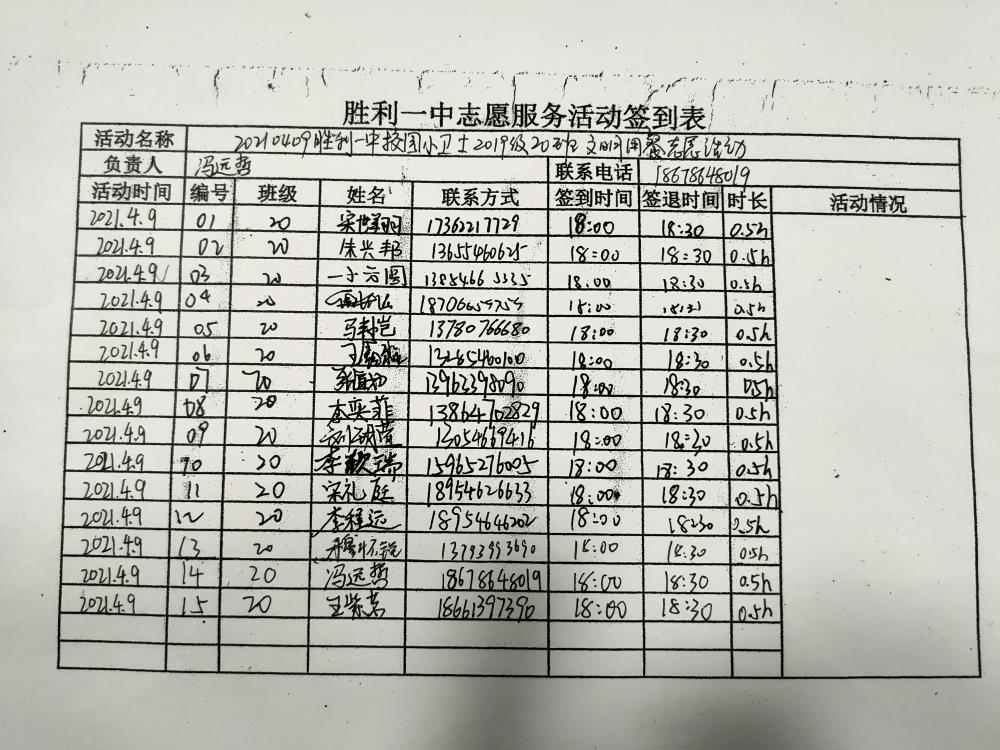 胜利一中志愿服务活动签到表
活动名称 20210409胜利一中校园小卫士2019级20班文明用餐志愿活动
负责人 冯远哲 联系电话 18678648019
活动时间 编号 班级 姓名 联系方式 签到时间 签退时间 时长 活动情况
2021.4.9 01 20 17362217729 18:00 18:30 0.5h
2021.4.9 02 20 朱兴邦 13655460625 18:00 18:30 0.5h
2021.4.9 03 20 18:00 18:30 0.5h
2021.4.9 04 20 18:00 0.5h
2021.4.9 05 20 13780766680 18:00 18:30 0.5h
2021.4.9 06 20 18:00 18:30 0.5h
2021.4.9 07 20 13963398090 18:00 18:30 0.5h
2021.4.9 08 20 李奕菲 13864702829 18:00 18:30 0.5h
2021.4.9 09 20 13054679416 18:00 18:30 0.5h
2021.4.9 10 20 李歆瑞 15965276005 18:00 18:30 0.5h
2021.4.9 11 20 宋礼庭 18954626633 18:00 18:30 0.5h
2021.4.9 12 20 李程远 18954646202 18:00 18:30 0.5h
2021.4.9 13 20 13793993690 18:00 18:30 0.5h
2021.4.9 14 20 冯远哲 18678648019 18:00 18:30 0.5h
2021.4.9 15 20 18661397390 18:00 18:30 0.5h